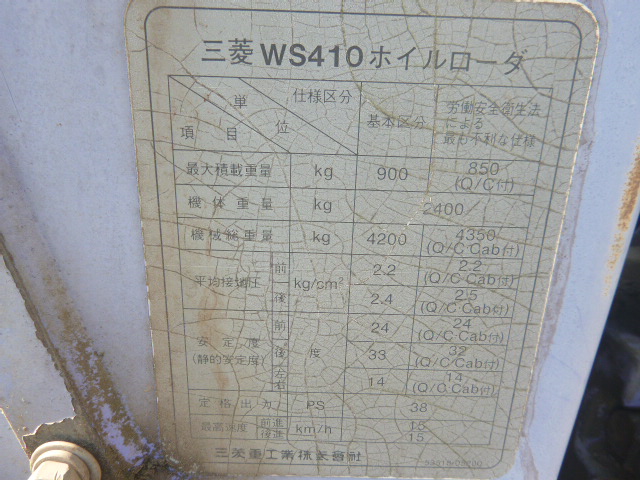 三菱WS410ホイルローダ
単位 仕様区分
項目
基本区分
労働安全衛生法
による
最も不利な仕様
最大積載重量 kg 900 850
(Q/C付)
機体重量 kg 2400
機械総重量 kg 4200 4350
(Q/C·Cab付)
平均接地圧 前 kg/cm² 2.2 2.2
(Q/C·Cab付)
後 2.4 2.5
(Q/C·Cab付)
安定度
(静的安定度)
前 度 24 24
(Q/C·Cab付)
後 33 32
(Q/C·Cab付)
左右 14 14
(Q/C·Cab付)
定格出力 PS 38
最高速度 前進 km/h 15
後進 15
三菱重工業株式会社